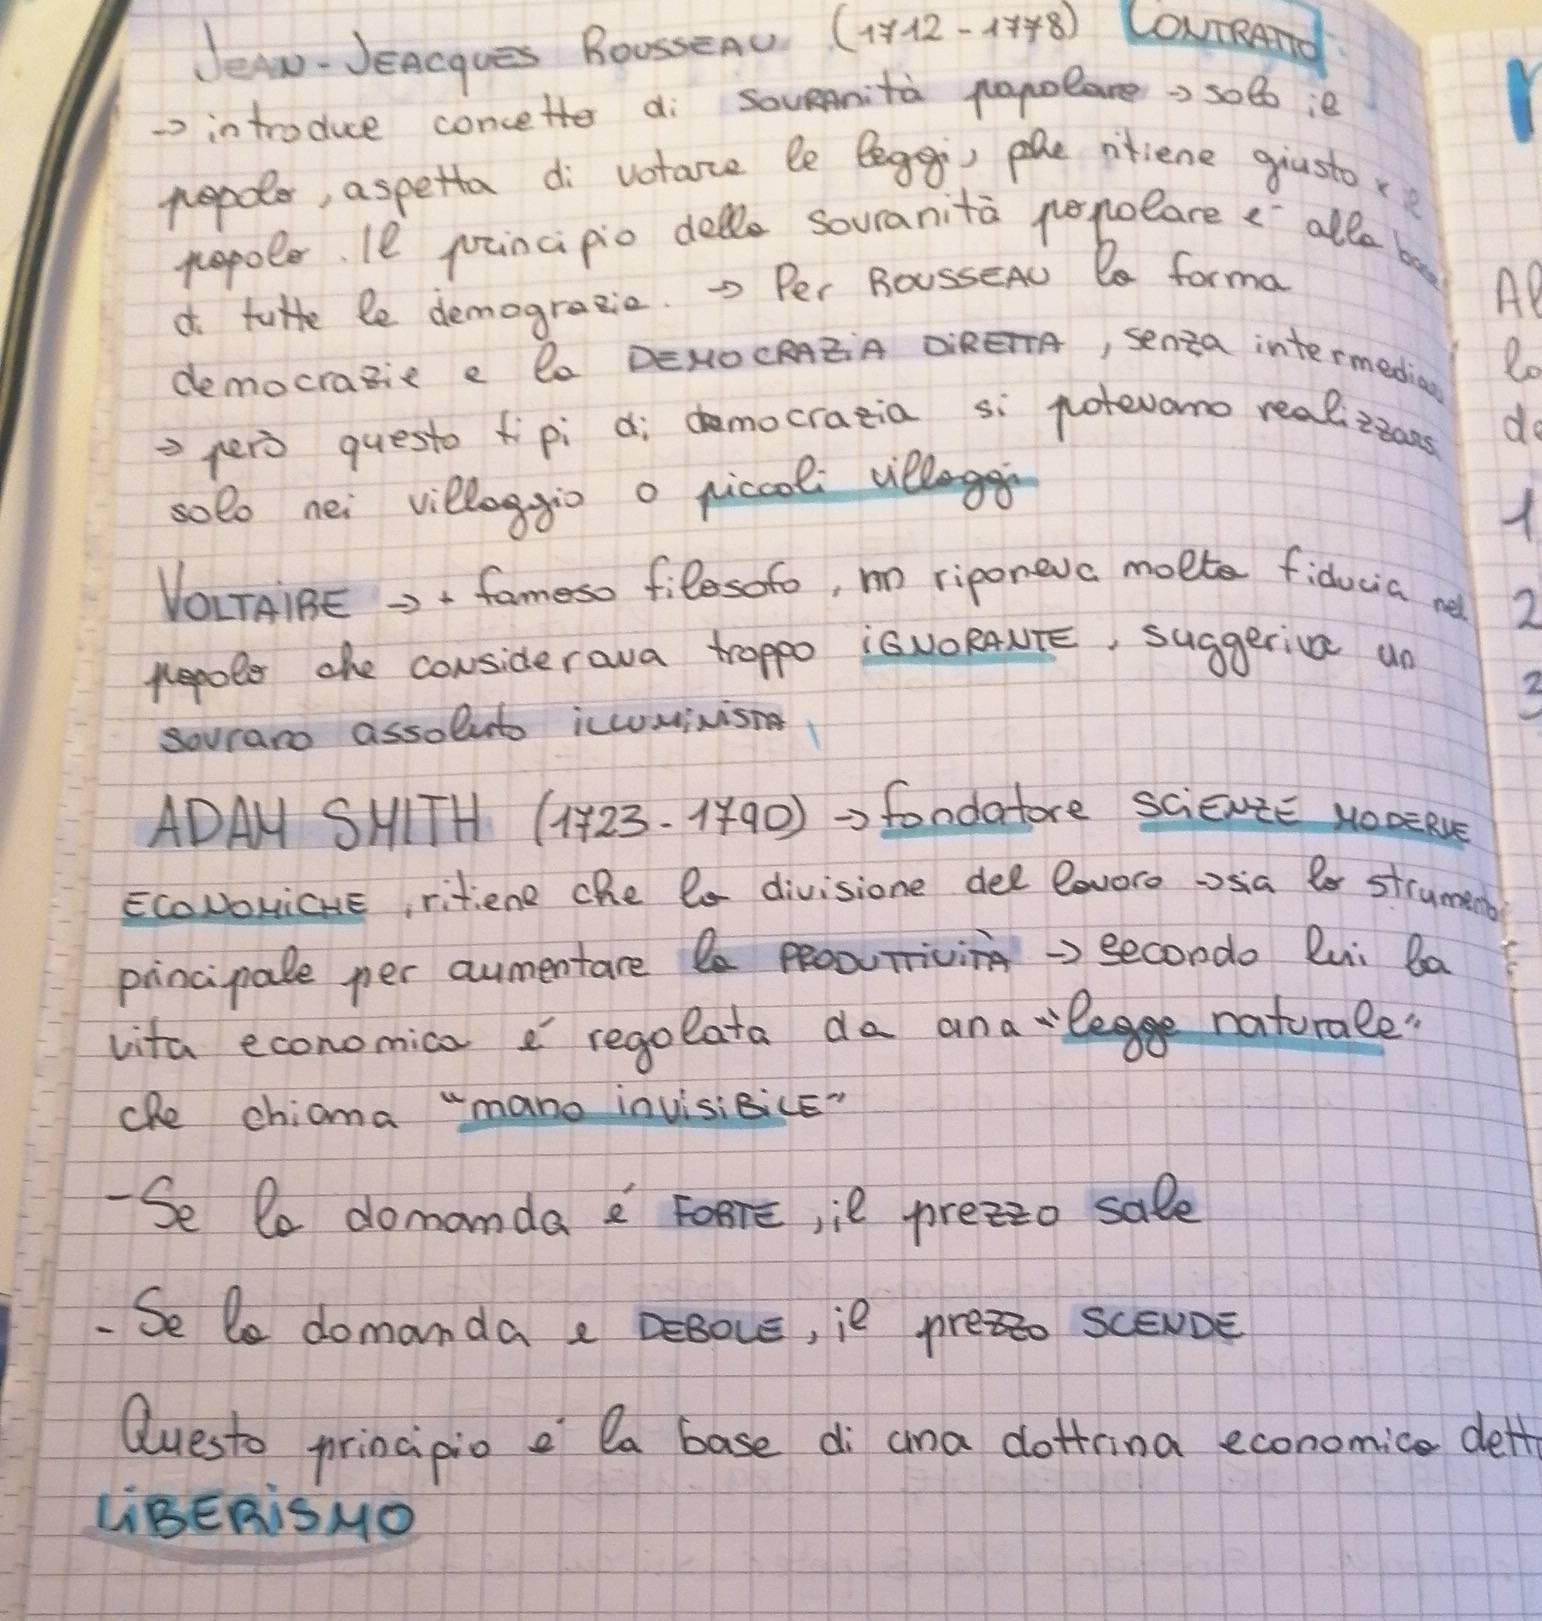 JEAN-JEACQUES ROUSSEAU (1712-1778) CONTRATTO
→ introduce concetto di SOVRAnità popolare → solo il
popolo, aspetta di votare le leggi, che ritiene giusto x il
popolo. Il principio della sovranità popolare e alla base
di tutte le demograzie. → Per ROUSSEAU la forma
democrazie e la DEMOCRAZIA DIRETTA, senza intermediari
→ però questo tipi di democrazia si potevamo realizzars
solo nei villaggio o piccoli villaggi
VOLTAIRE → + famoso filosofo, nn riponeva molta fiducia nel
popolo che considerava troppo IGNORANTE, suggeriva un
sovrano assoluto ILLUMINISTA
ADAM SMITH (1723-1790) → fondatore SCIENZE MODERNE
ECONOMICHE, ritiene che la divisione del lavoro → sia lo strumento
principale per aumentare la PRODUTTIVITÀ → secondo lui la
vita economica é regolata da una "legge naturale"
che chiama "mano invisiBiLE"
- Se la domanda é FORTE, il prezzo sale
- Se la domanda e DEBOLE, il prezzo SCENDE
Questo principio e' la base di una dottrina economica dett
LIBERISMO
Al
lo
de
1
2
3